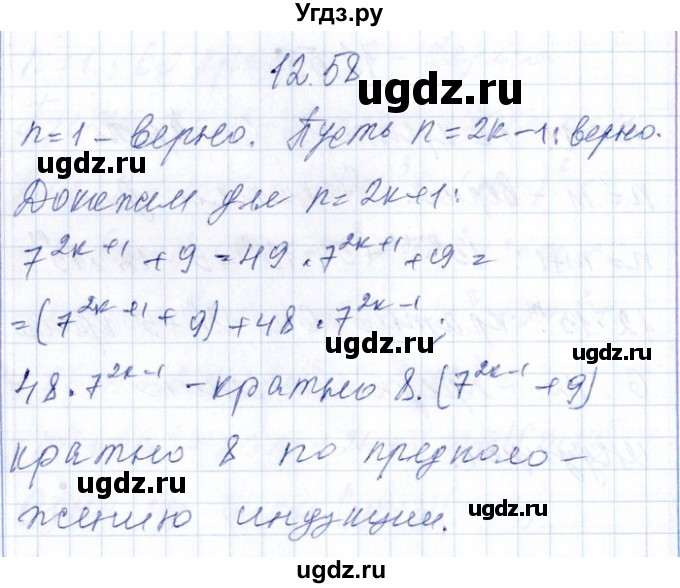 Угдз.ру
12.58
ugdz.ru
n=1 – верно. Пусть n=2k-1: верно.
ugdz.ru
ugdz.ru
Докажем для n=2k+1:
7^{2k+1} + 9 = 49 · 7^{2k+1} + 9 =
ugdz.ru
= (7^{2k+1} + 9) + 48 · 7^{2k-1};
ugdz.ru
48 · 7^{2k-1} – кратно 8. (7^{2k-1} + 9)
кратно 8 по предполо-
ugdz.ru
жению индукции.
ugdz.ru